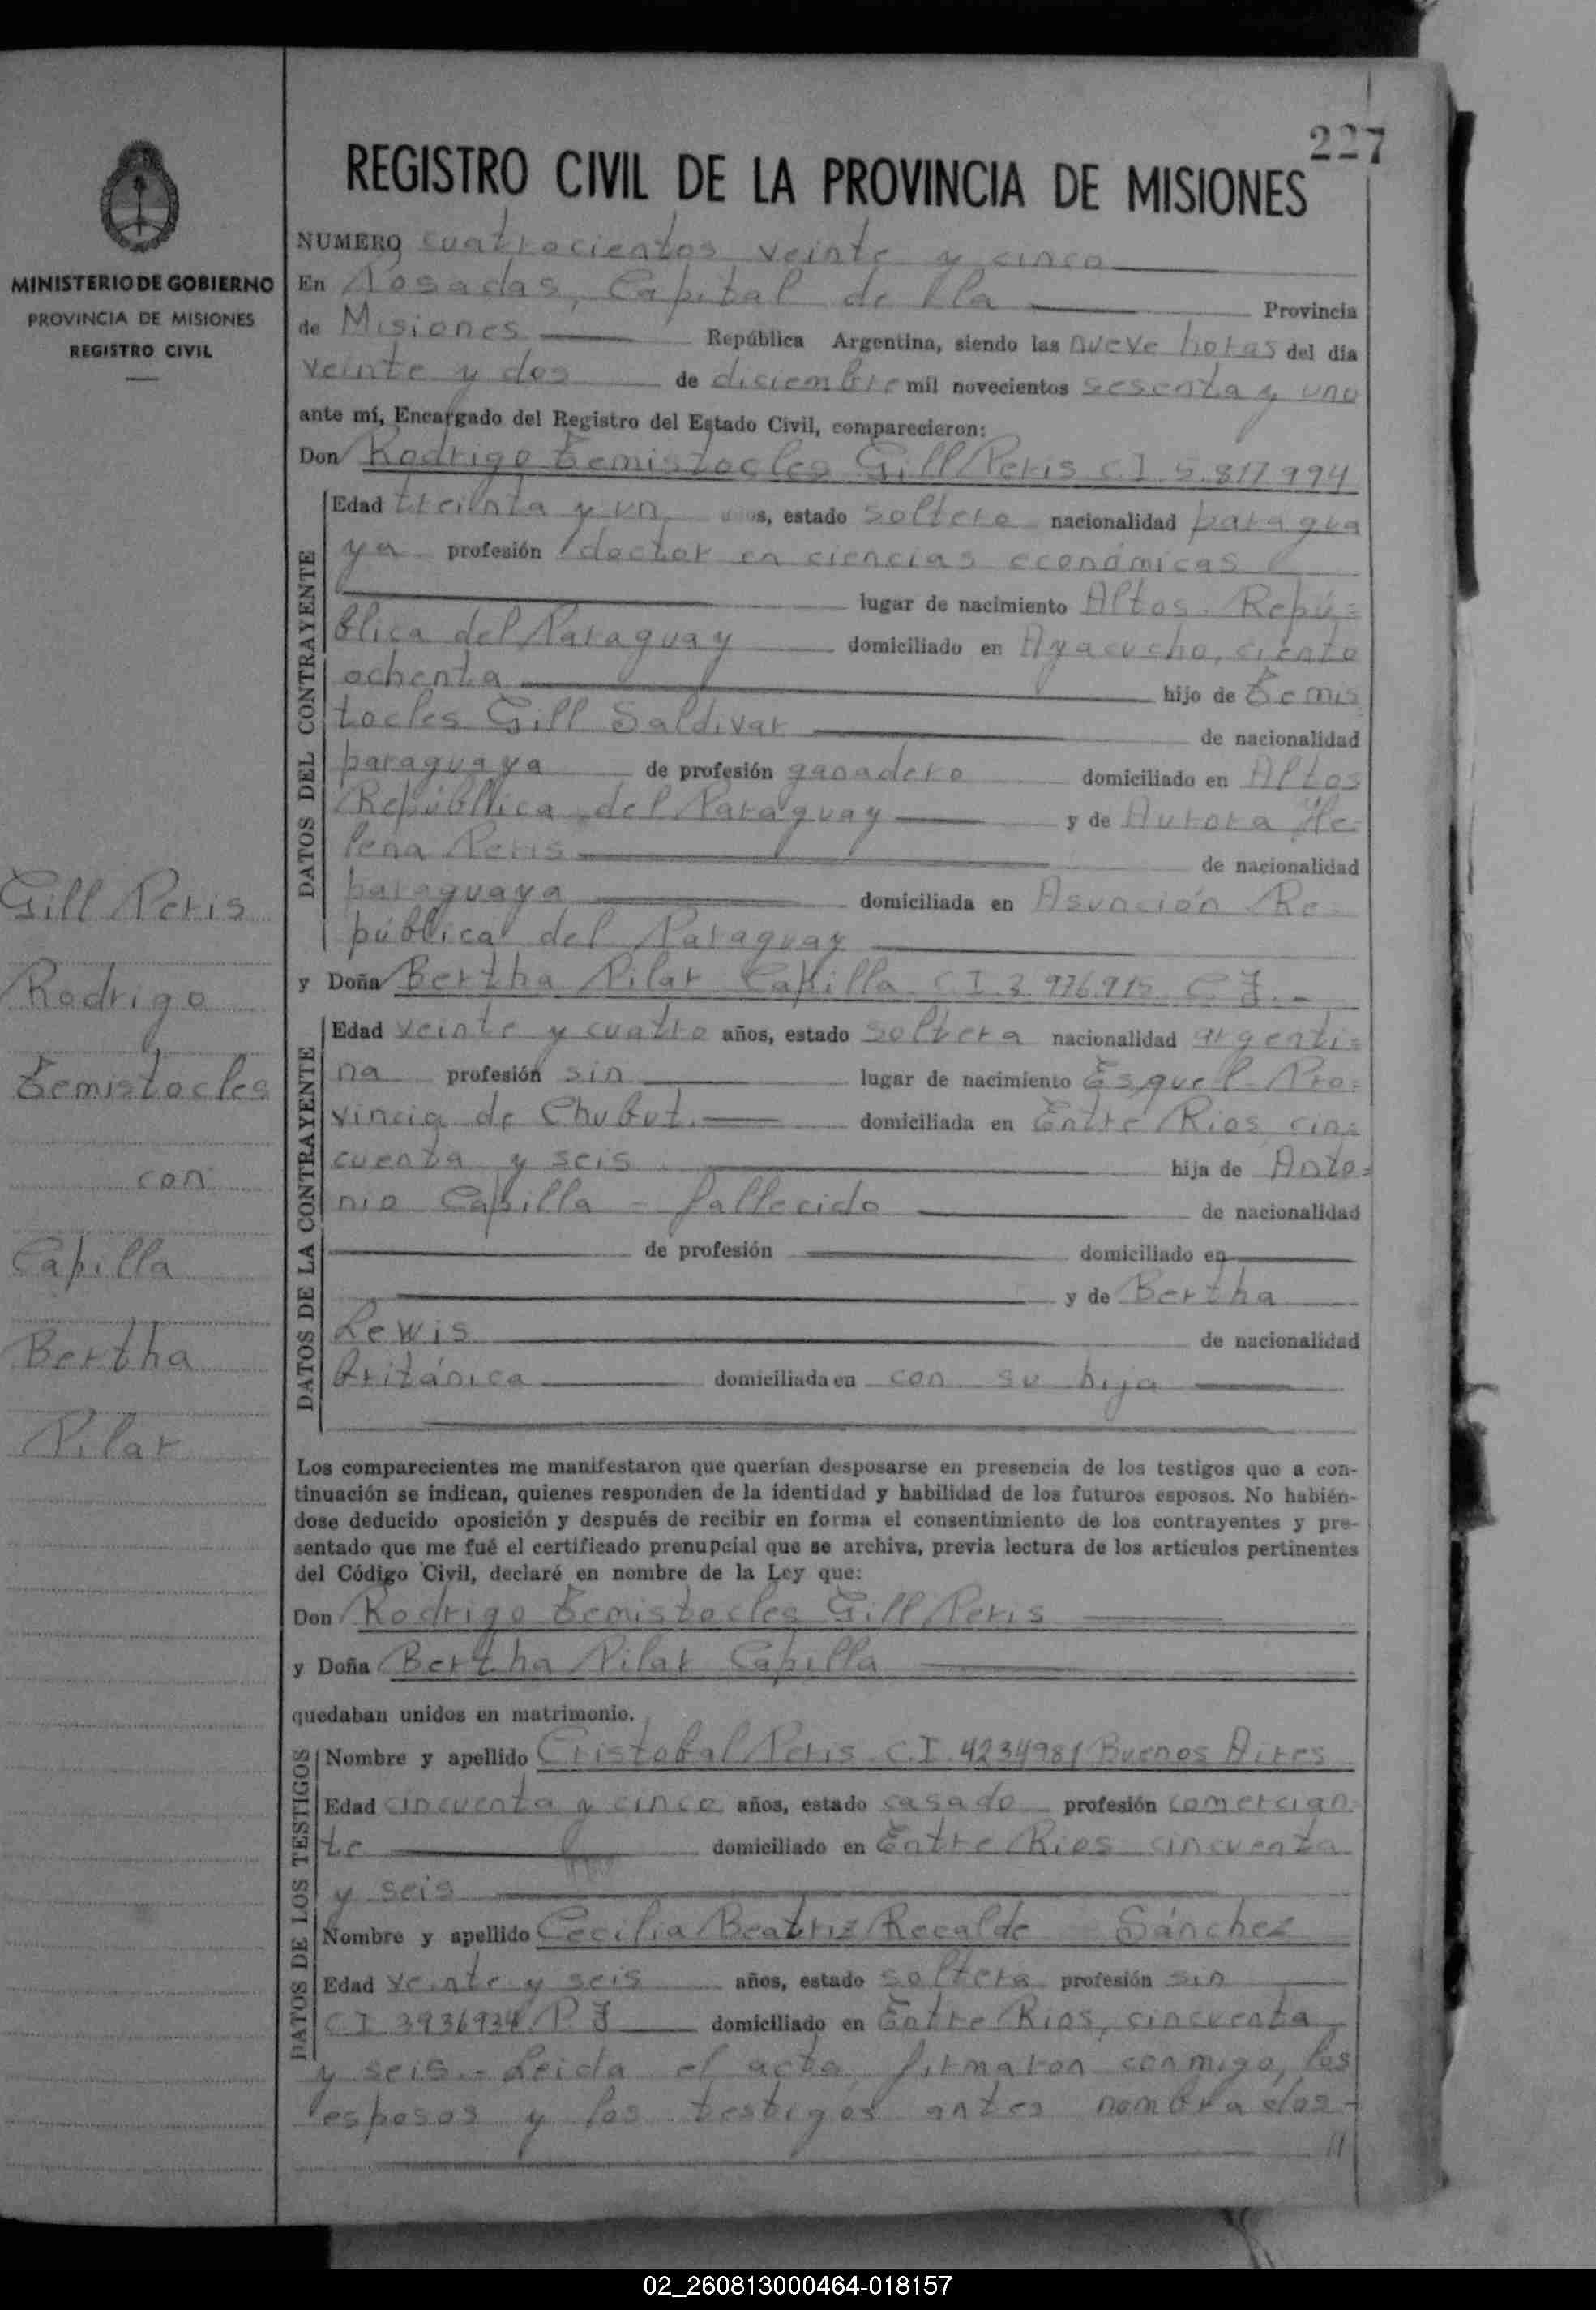 227
REGISTRO CIVIL DE LA PROVINCIA DE MISIONES
MINISTERIO DE GOBIERNO
PROVINCIA DE MISIONES
REGISTRO CIVIL
NUMERO cuatrocientos veinte y cinco
En Posadas, Capital de la Provincia
de Misiones República Argentina, siendo las nueve horas del día
veinte y dos de diciembre mil novecientos sesenta y uno
ante mí, Encargado del Registro del Estado Civil, comparecieron:
Don Rodrigo Temistocles Gill Peris C I 5.817994
DATOS DEL CONTRAYENTE
Edad treinta y un años, estado soltero nacionalidad paragua
ya profesión doctor en ciencias económicas
lugar de nacimiento Altos Repú=
blica del Paraguay domiciliado en Ayacucho, ciento
ochenta hijo de Temis
tocles Gill Saldivar de nacionalidad
paraguaya de profesión ganadero domiciliado en Altos
República del Paraguay y de Aurora He-
lena Peris de nacionalidad
paraguaya domiciliada en Asunción Re-
pública del Paraguay
y Doña Bertha Pilar Capilla C I 3.976.915
DATOS DE LA CONTRAYENTE
Edad veinte y cuatro años, estado soltera nacionalidad argenti=
na profesión sin lugar de nacimiento Esquel Pro=
vincia de Chubut. domiciliada en Entre Rios cin=
cuenta y seis hija de Anto=
nio Capilla - fallecido de nacionalidad
de profesión domiciliado en
y de Bertha
Lewis de nacionalidad
Británica domiciliada en con su hija
Los comparecientes me manifestaron que querían desposarse en presencia de los testigos que a con-
tinuación se indican, quienes responden de la identidad y habilidad de los futuros esposos. No habién-
dose deducido oposición y después de recibir en forma el consentimiento de los contrayentes y pre-
sentado que me fué el certificado prenupcial que se archiva, previa lectura de los artículos pertinentes
del Código Civil, declaré en nombre de la Ley que:
Don Rodrigo Temistocles Gill Peris
y Doña Bertha Pilar Capilla
quedaban unidos en matrimonio.
DATOS DE LOS TESTIGOS
Nombre y apellido Cristobal Peris C.I. 4234981 Buenos Aires
Edad cincuenta y cinco años, estado casado profesión comercian=
te domiciliado en Entre Rios cincuenta
y seis
Nombre y apellido Cecilia Beatriz Recalde Sánchez
Edad veinte y seis años, estado soltera profesión sin
C I 3936934 domiciliado en Entre Rios, cincuenta
y seis.- Leida el acta, firmaron conmigo, los
esposos y los testigos antes nombrados-
//
Gill Peris
Rodrigo
Temistocles
con
Capilla
Bertha
Pilar
02_260813000464-018157